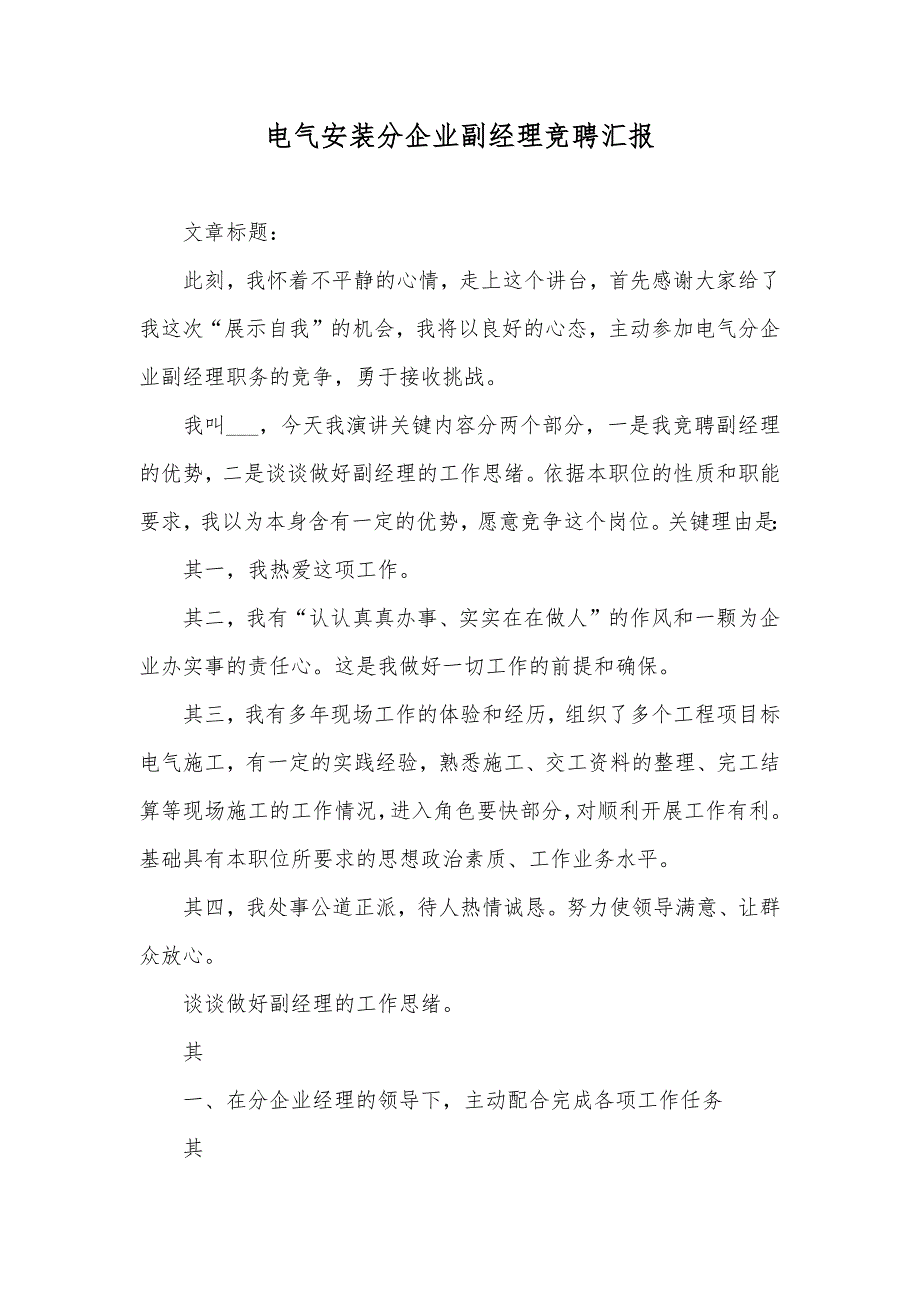 电气安装分企业副经理竞聘汇报
文章标题：
此刻，我怀着不平静的心情，走上这个讲台，首先感谢大家给了
我这次“展示自我”的机会，我将以良好的心态，主动参加电气分企
业副经理职务的竞争，勇于接收挑战。
我叫___，今天我演讲关键内容分两个部分，一是我竞聘副经理
的优势，二是谈谈做好副经理的工作思绪。依据本职位的性质和职能
要求，我以为本身含有一定的优势，愿意竞争这个岗位。关键理由是：
其一，我热爱这项工作。
其二，我有“认认真真办事、实实在在做人”的作风和一颗为企
业办实事的责任心。这是我做好一切工作的前提和确保。
其三，我有多年现场工作的体验和经历，组织了多个工程项目标
电气施工，有一定的实践经验，熟悉施工、交工资料的整理、完工结
算等现场施工的工作情况，进入角色要快部分，对顺利开展工作有利。
基础具有本职位所要求的思想政治素质、工作业务水平。
其四，我处事公道正派，待人热情诚恳。努力使领导满意、让群
众放心。
谈谈做好副经理的工作思绪。
其
一、在分企业经理的领导下，主动配合完成各项工作任务
其